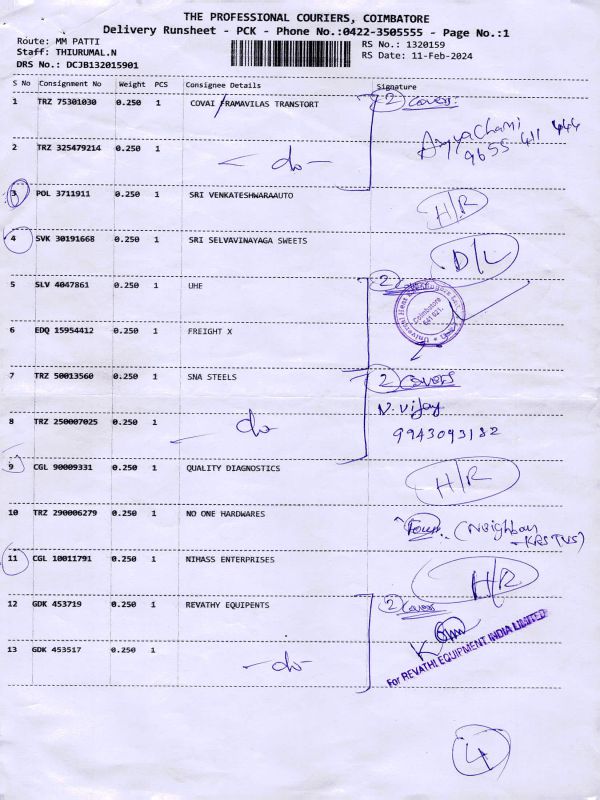 THE PROFESSIONAL COURIERS, COIMBATORE
Delivery Runsheet - PCK - Phone No.:0422-3505555 - Page No.:1
Route: MM PATTI
RS No.: 1320159
Staff: THIURUMAL.N
RS Date: 11-Feb-2024
DRS No.: DCJB132015901
S No Consignment No Weight PCS Consignee Details Signature
1 TRZ 75301030 0.250 1 COVAI FRAMAVILAS TRANSTORT 2 Covers:
Ayyachami
9655 411 444
2 TRZ 325479214 0.250 1 -do-
3 POL 3711911 0.250 1 SRI VENKATESHWARAAUTO H/R
4 SVK 30191668 0.250 1 SRI SELVAVINAYAGA SWEETS D/L
5 SLV 4047861 0.250 1 UHE 2
Coimbatore
641 021.
6 EDQ 15954412 0.250 1 FREIGHT X
7 TRZ 50013560 0.250 1 SNA STEELS 2 Covers
N. Vijay
9943093182
8 TRZ 250007025 0.250 1 -do-
9 CGL 90009331 0.250 1 QUALITY DIAGNOSTICS H/R
10 TRZ 290006279 0.250 1 NO ONE HARDWARES (Neighbour
KRS TVS)
11 CGL 10011791 0.250 1 NIHASS ENTERPRISES H/R
12 GDK 453719 0.250 1 REVATHY EQUIPENTS 2 Covers
For REVATHI EQUIPMENT INDIA LIMITED
13 GDK 453517 0.250 1 -do-
4